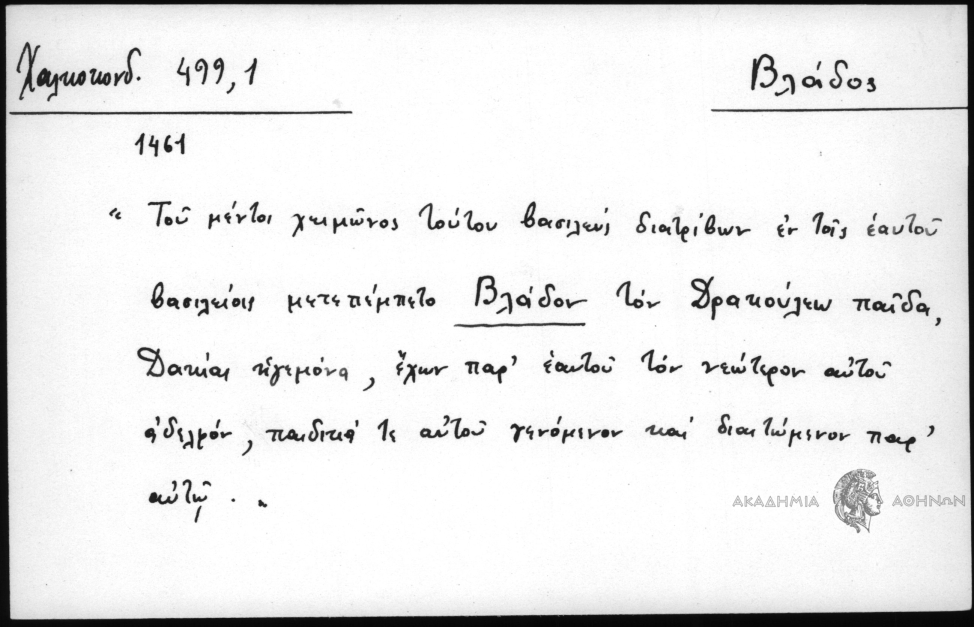 Χαλκοκονδ. 499,1
Βλάδος
1461
“ Τοῦ μέντοι χειμῶνος τούτου βασιλεύς διατρίβων ἐν τοῖς ἑαυτοῦ
βασιλείοις μετεπέμπετο Βλάδον τόν Δρακούλεω παῖδα,
Δακίας ἡγεμόνα, ἔχων παρ' ἑαυτοῦ τόν νεώτερον αὐτοῦ
ἀδελφόν, παιδικά τε αὐτοῦ γενόμενον καί διαιτώμενον παρ'
αὐτῷ. „
ΑΚΑΔΗΜΙΑ ΑΘΗΝΩΝ